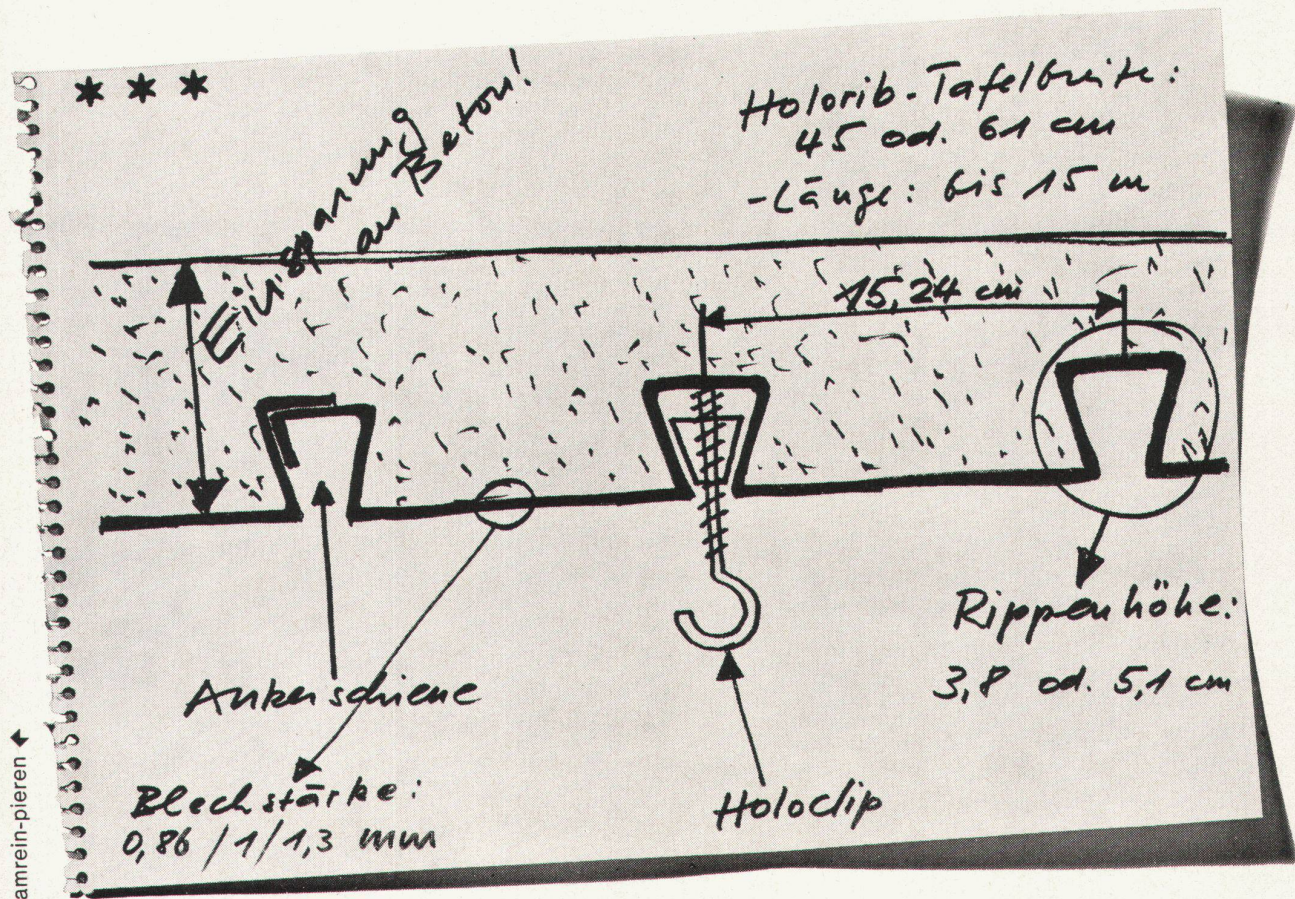 ***
Einsparung
an Beton!
Holorib-Tafelbreite:
45 od. 61 cm
-Länge: bis 15 m
15,24 cm
Rippenhöhe:
3,8 od. 5,1 cm
Ankerschiene
Blechstärke:
0,86 / 1 / 1,3 mm
Holoclip
amrein-pieren